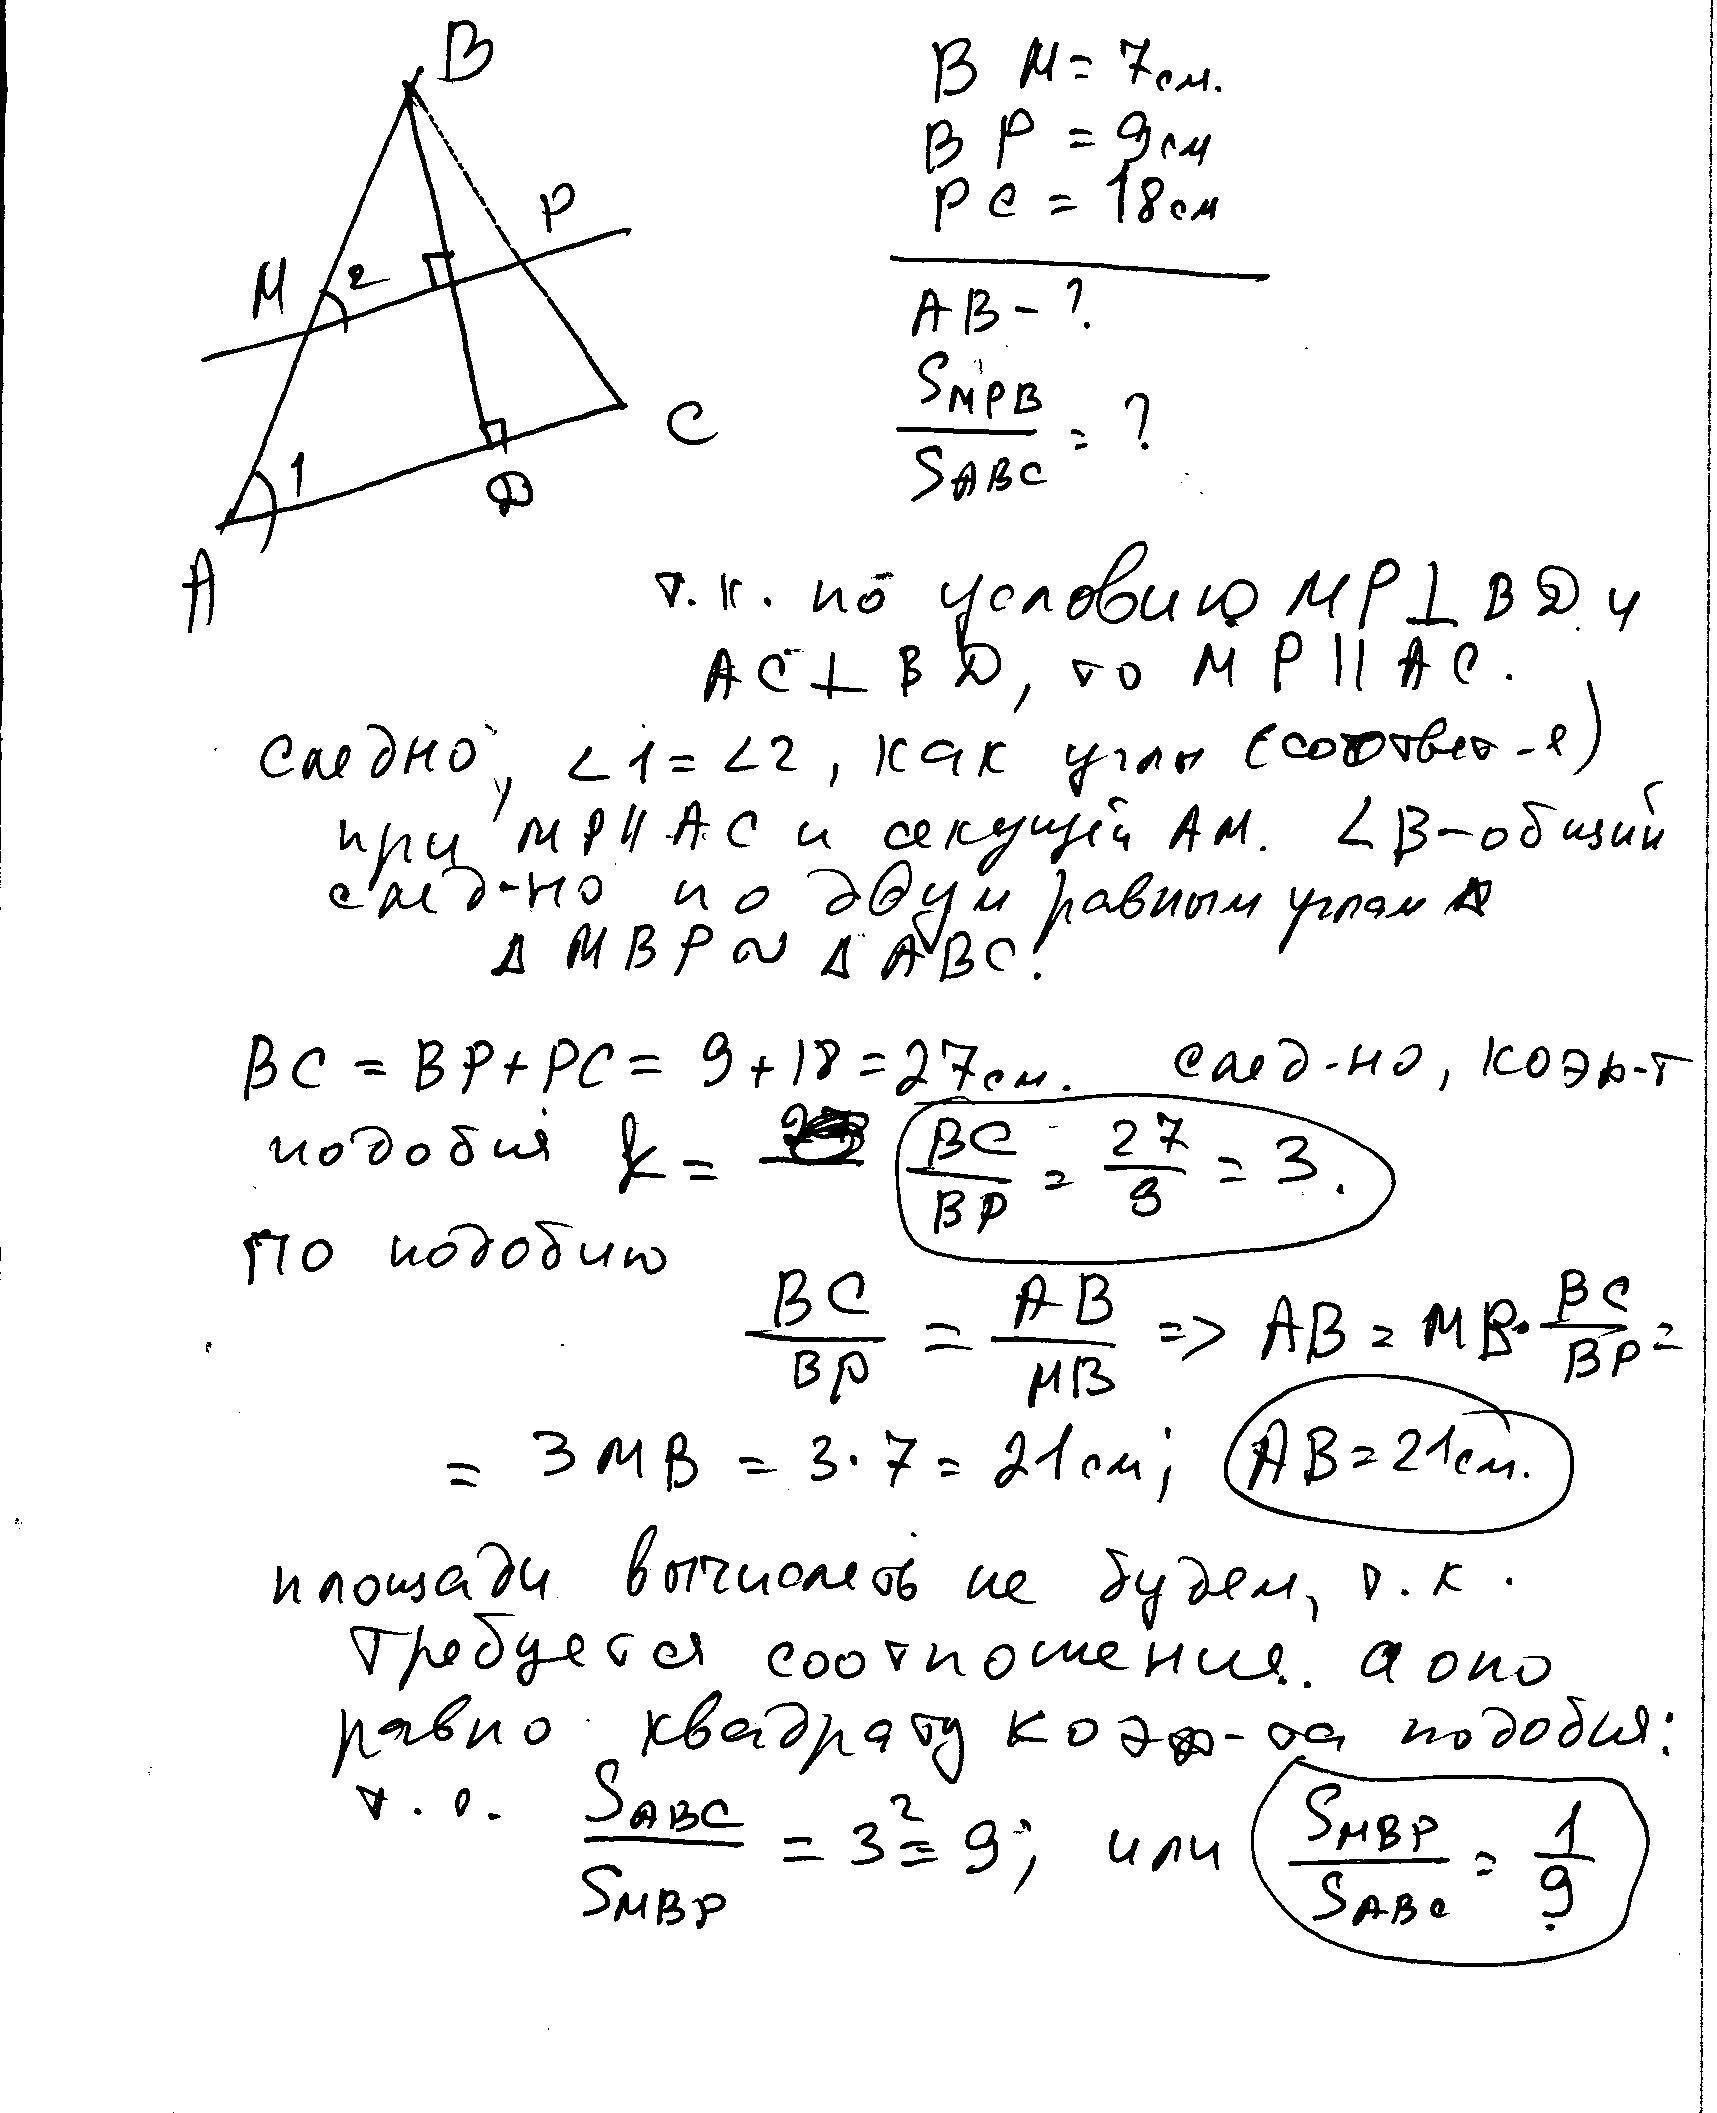 B
P
M
2
C
1
D
A
BM = 7см.
BP = 9см
PC = 18см
AB - ?
S_MPB / S_ABC = ?
т.к. по условию MP ⊥ BD и
AC ⊥ BD, то MP || AC.
следно, ∠1 = ∠2, как углы (соответ-е)
при MP || AC и секущей AM. ∠B - общий
след-но по двум равным углам
Δ MBP ~ Δ ABC.
BC = BP + PC = 9 + 18 = 27см. след-но, коэф-т
подобия k = BC / BP = 27 / 9 = 3.
по подобию
BC / BP = AB / MB => AB = MB · BC / BP =
= 3MB = 3 · 7 = 21см; AB = 21см.
площади вычислять не будем, т.к.
требуется соотношения. а оно
равно квадрату коэф-та подобия:
т.о. S_ABC / S_MBP = 3² = 9; или S_MBP / S_ABC = 1 / 9